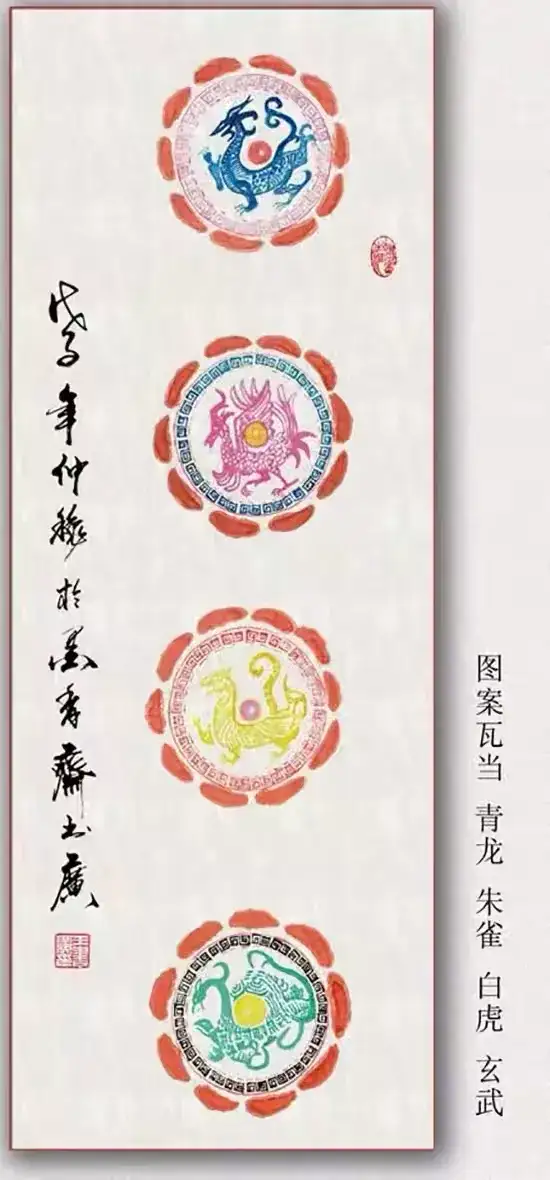 图案瓦当 青龙 朱雀 白虎 玄武
戊子年仲於墨香齋廣